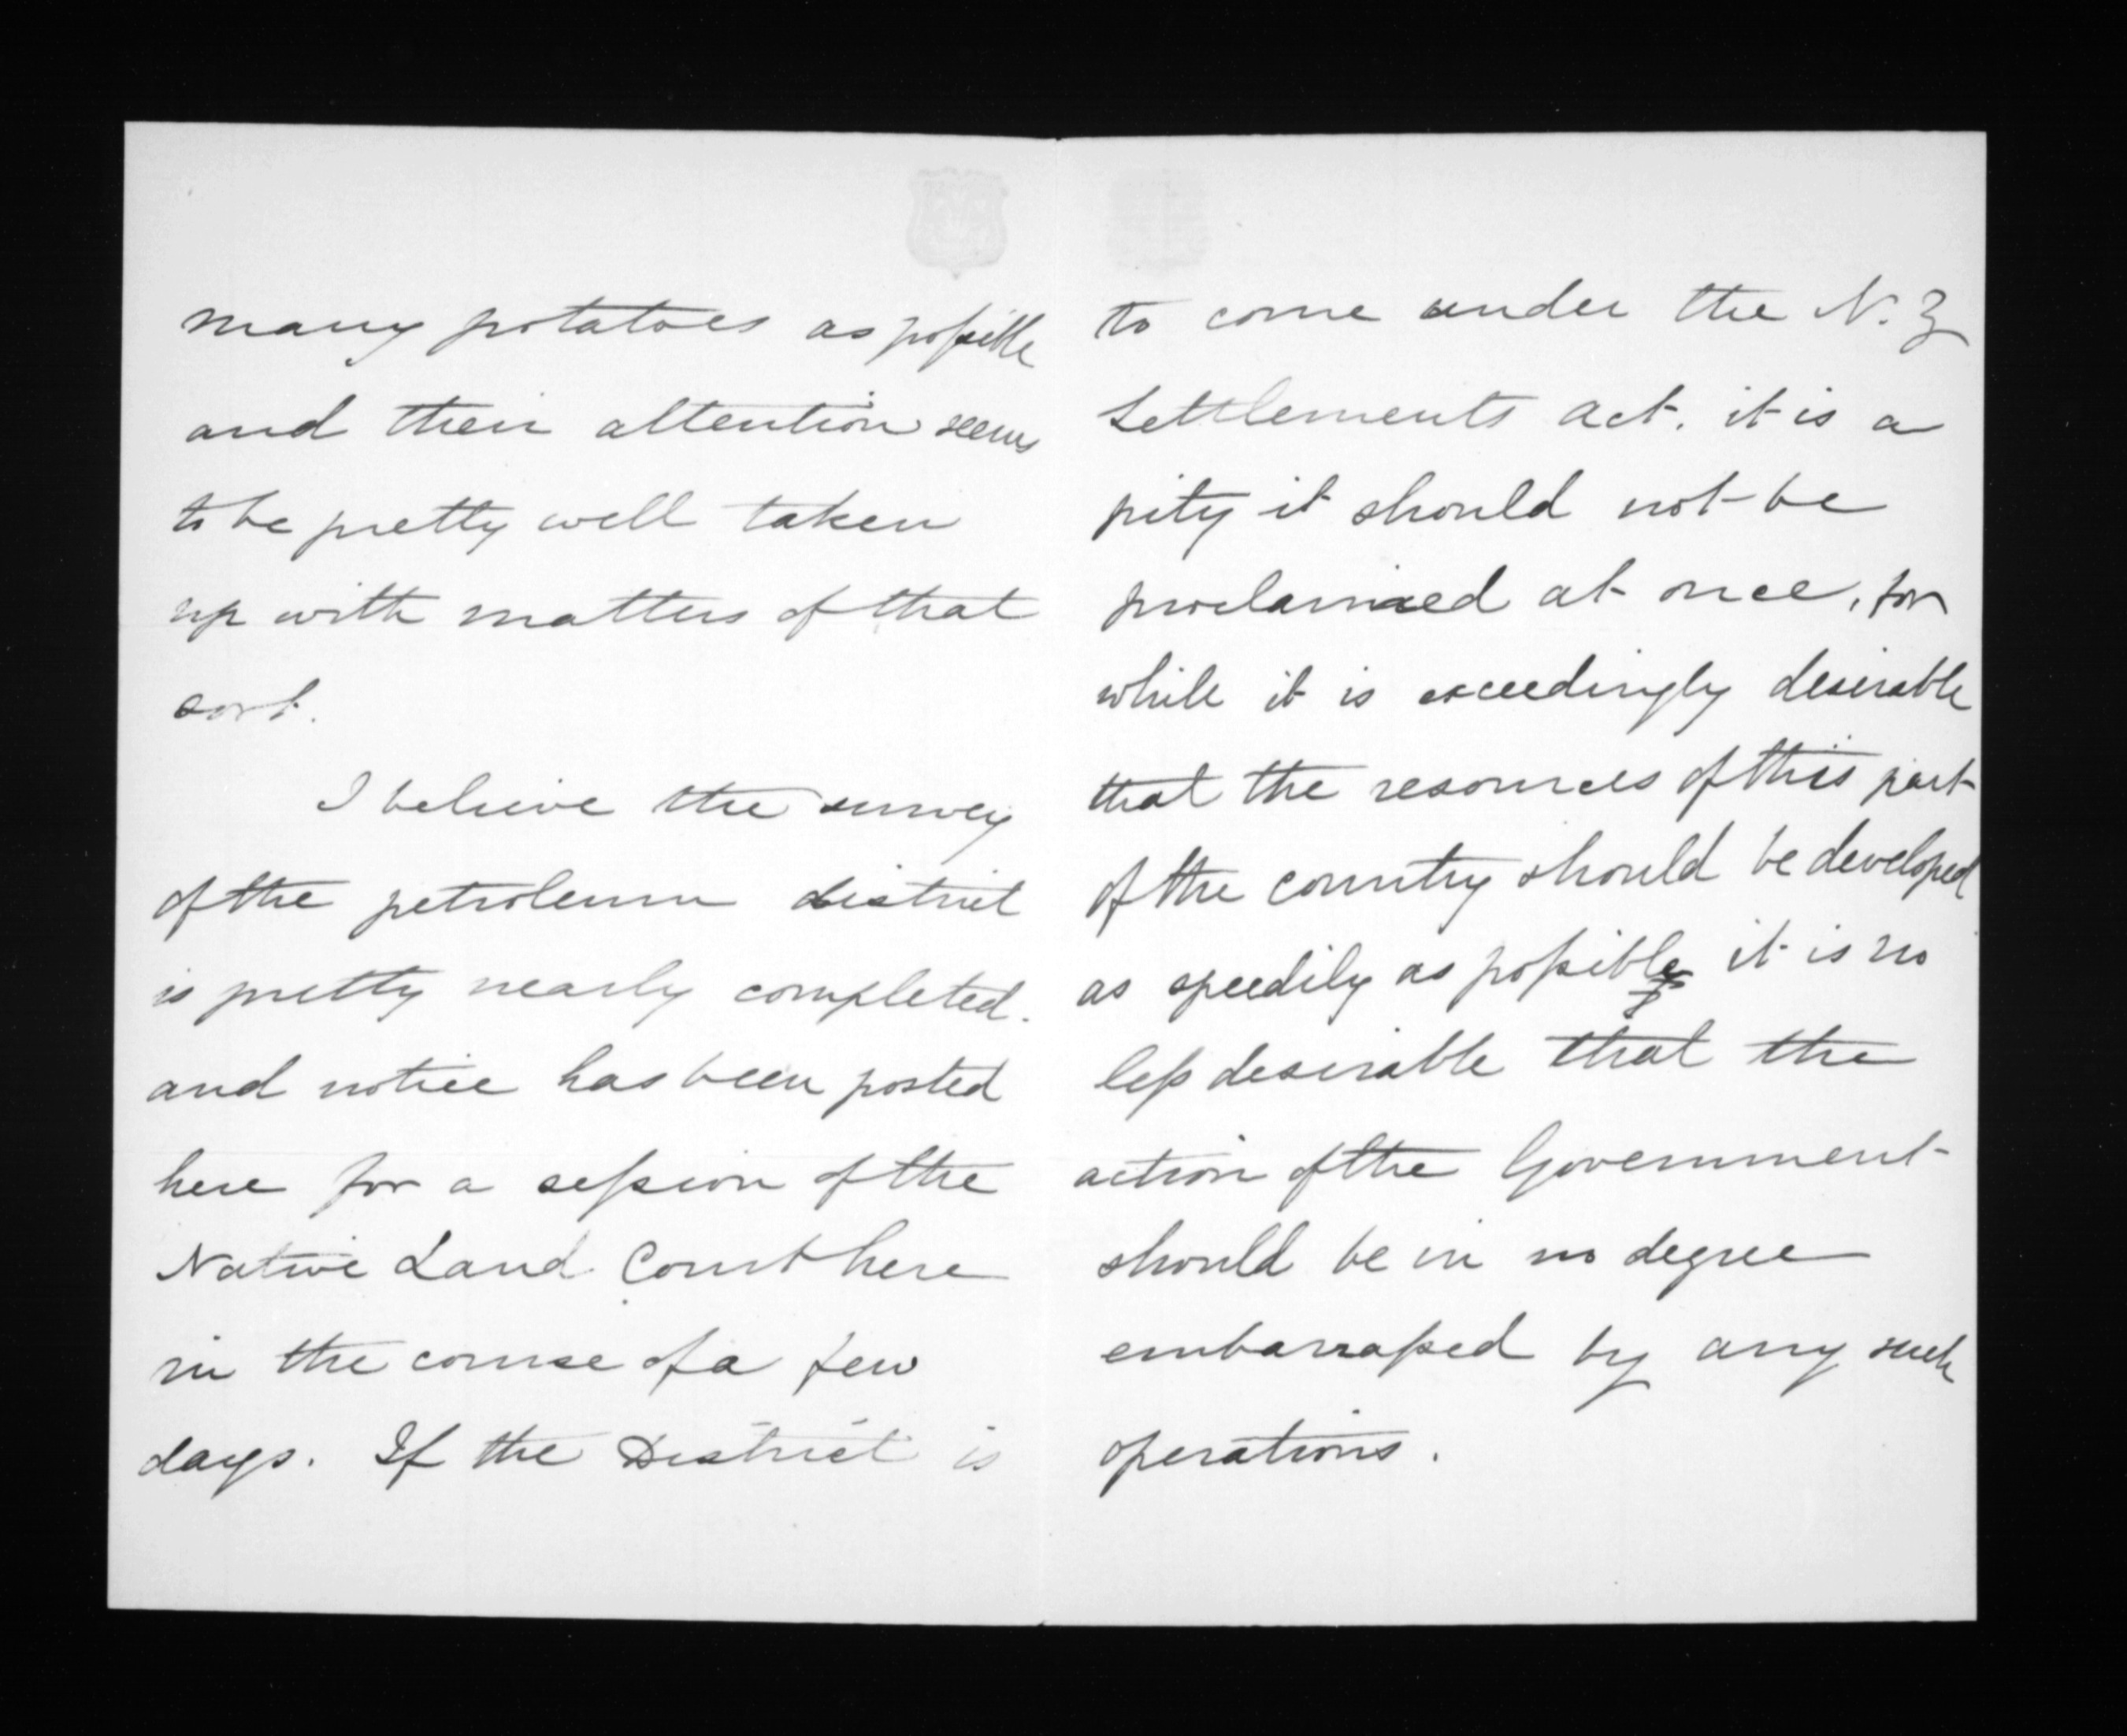 many potatoes as possible
and their attention seems
to be pretty well taken
up with matters of that
sort.
I believe the survey
of the petroleum district
is pretty nearly completed.
and notice has been posted
here for a session of the
Native Land Court here
in the course of a few
days. If the District is
to come under the N.Z
Settlements Act. it is a
pity it should not be
proclaimed at once, for
while it is exceedingly desirable
that the resources of this part
of the country should be developed
as speedily as possible it is no
less desirable that the
action of the Government
should be in no degree
embarrassed by any such
operations.